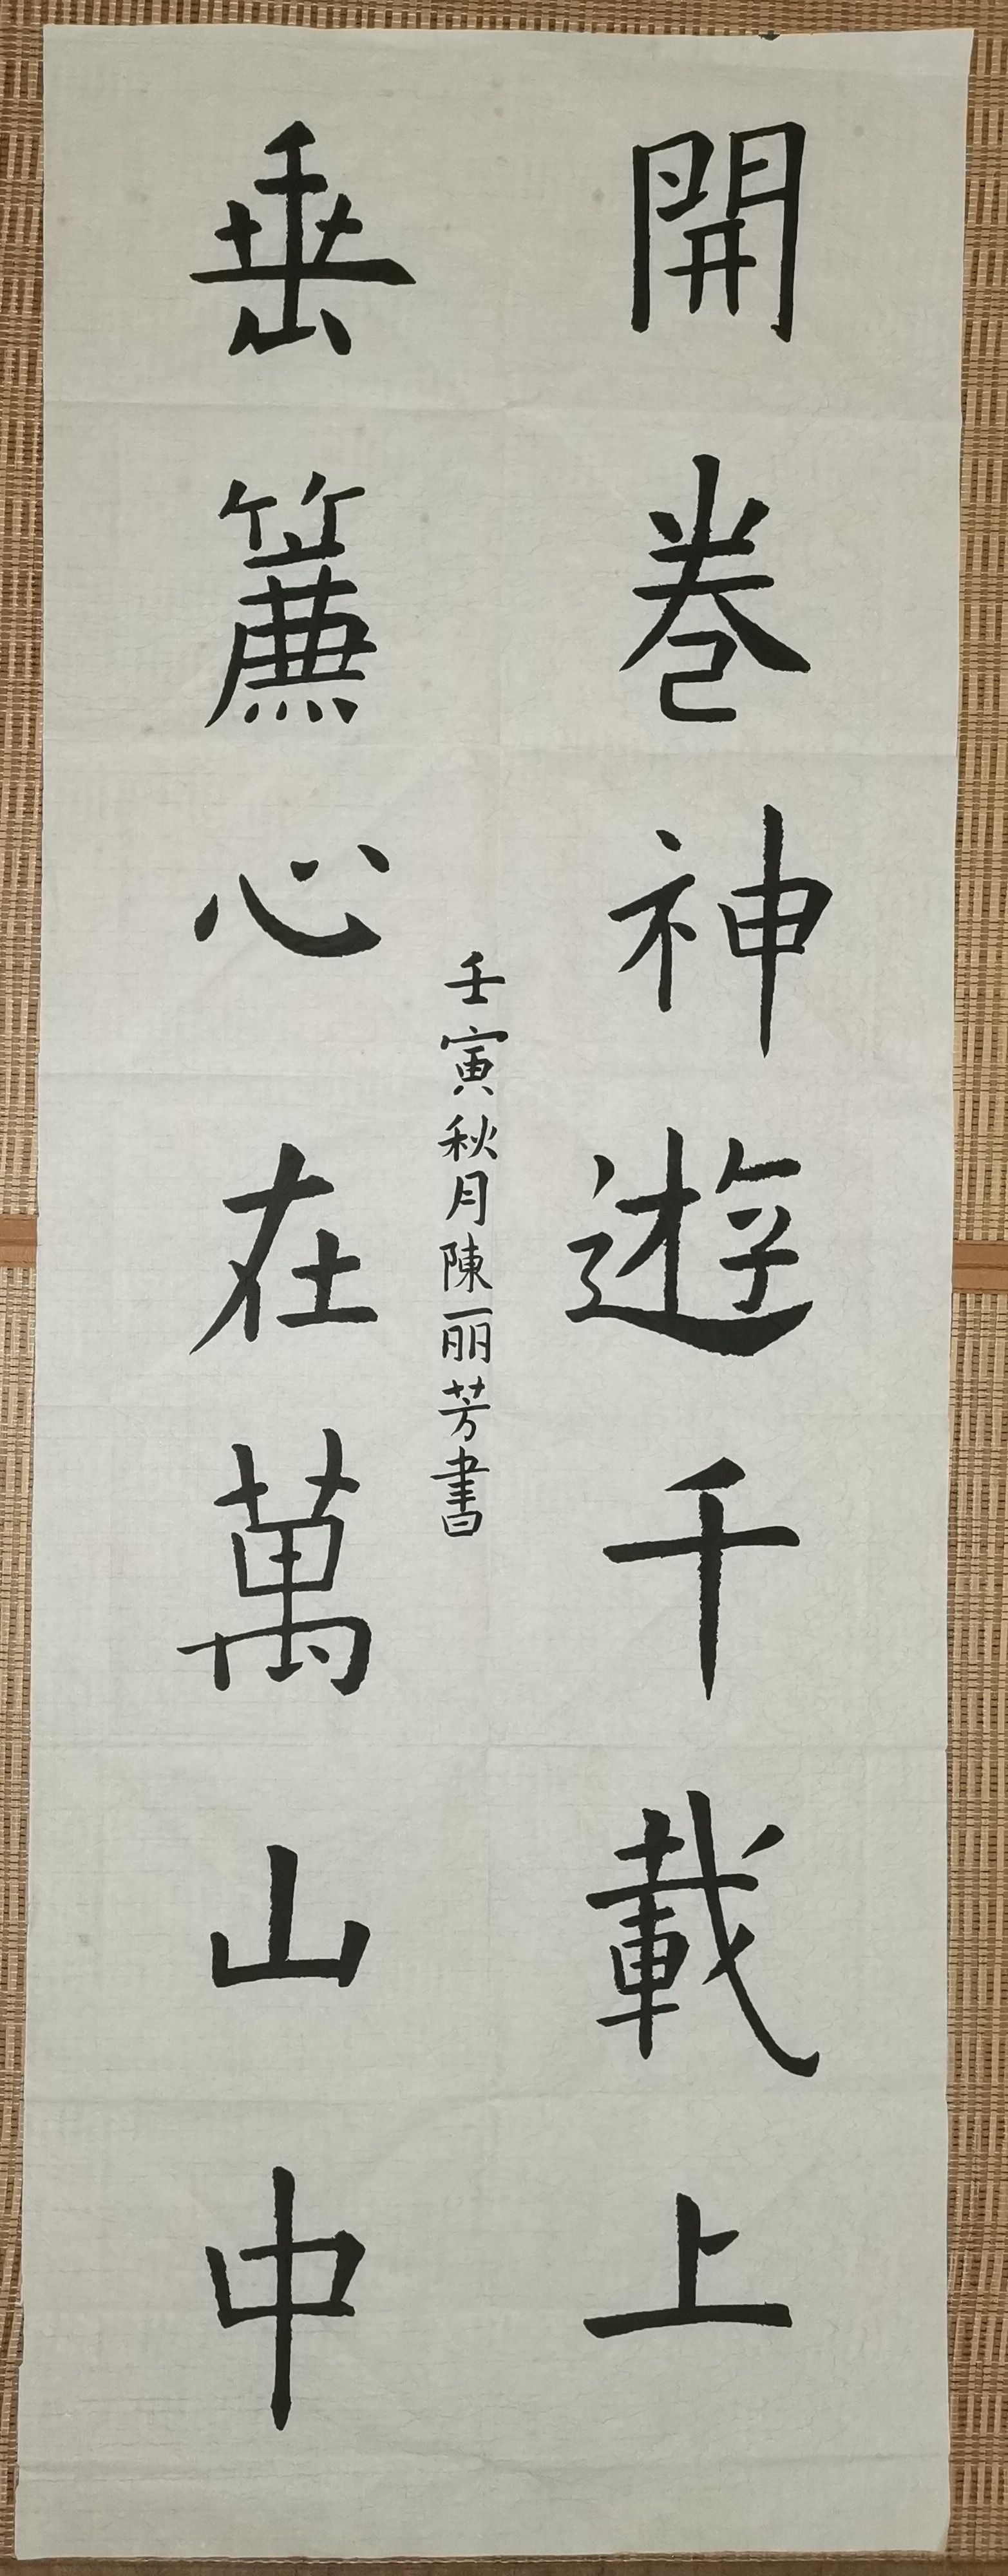 開卷神遊千載上
垂簾心在萬山中
壬寅秋月陳丽芳書